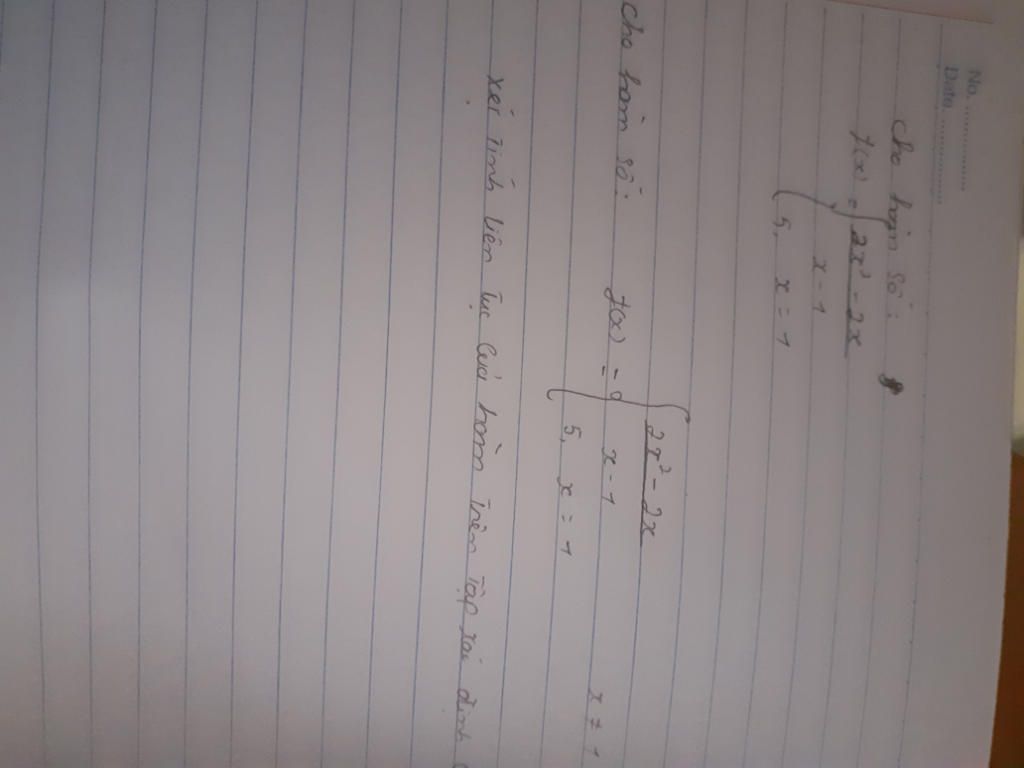 No. ................
Date ................
cho hàm số:
f(x) = { 2x² - 2x
x - 1
5, x = 1
cho hàm số: f(x) = { 2x² - 2x
x - 1 x ≠ 1
5, x = 1
xét tính liên tục của hàm trên tập xác định